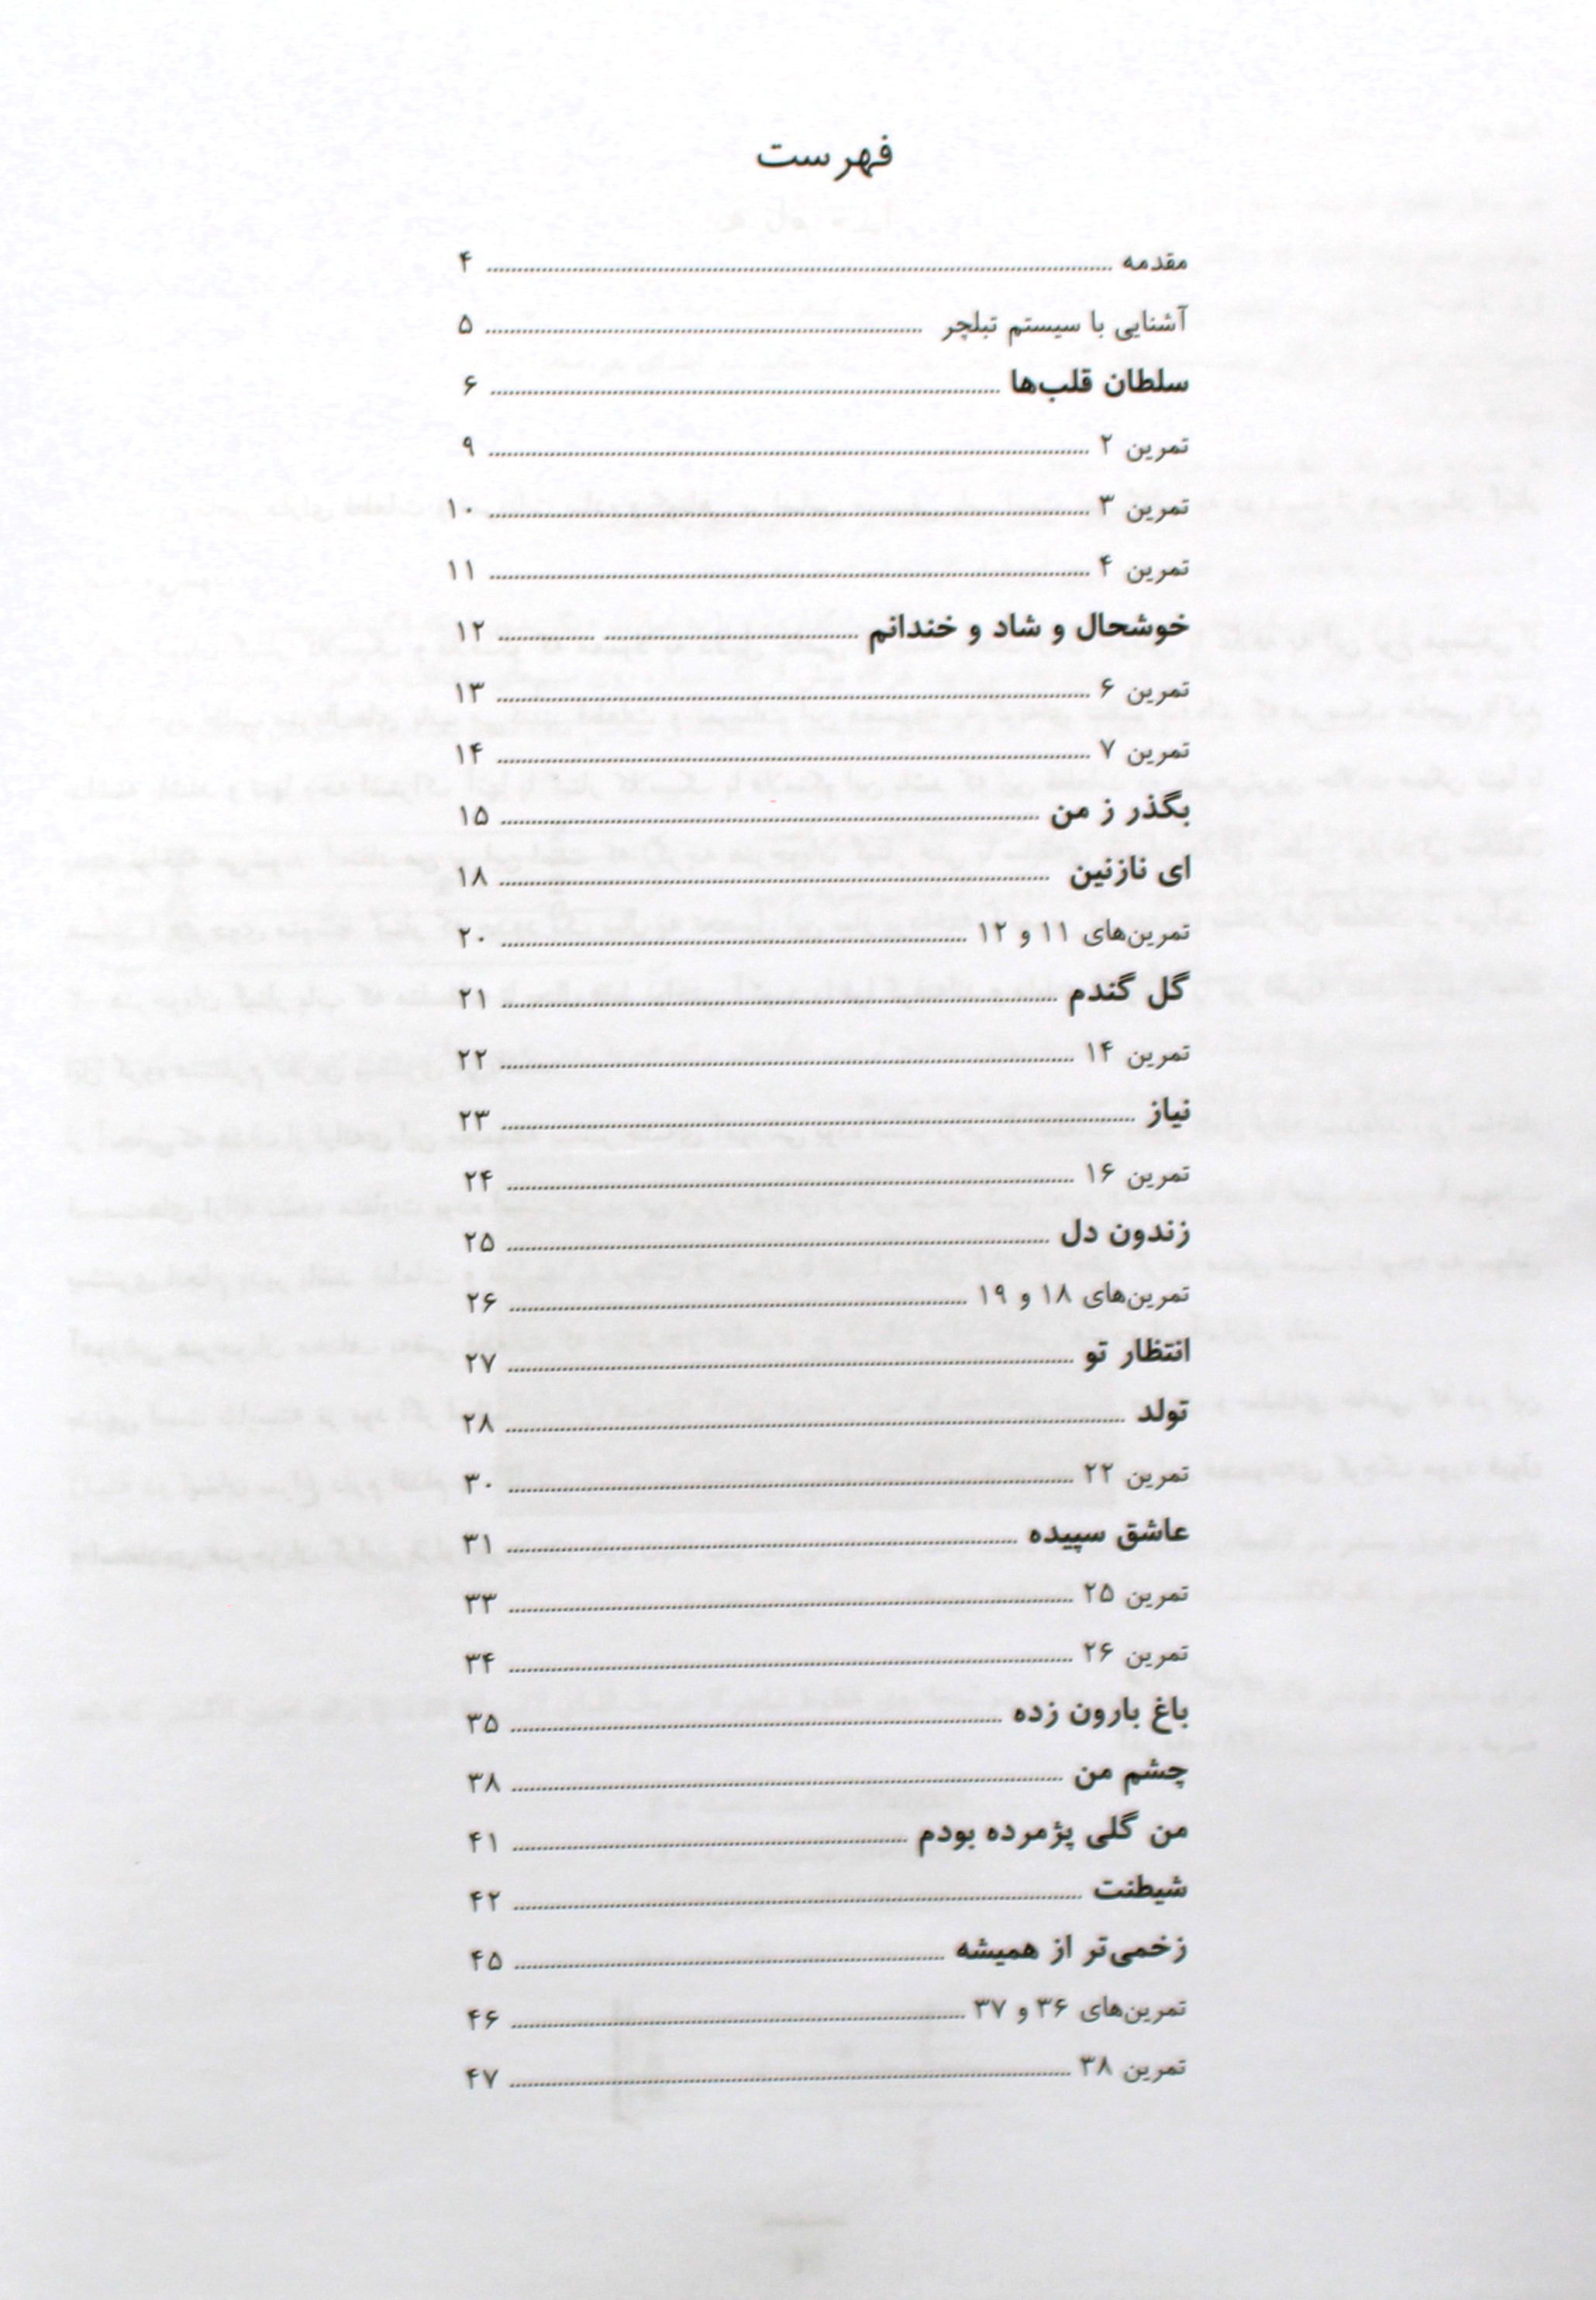 فهرست
مقدمه ........ ۴
آشنایی با سیستم تبلچر ........ ۵
سلطان قلب‌ها ........ ۶
تمرین ۲ ........ ۹
تمرین ۳ ........ ۱۰
تمرین ۴ ........ ۱۱
خوشحال و شاد و خندانم ........ ۱۲
تمرین ۶ ........ ۱۳
تمرین ۷ ........ ۱۴
بگذر ز من ........ ۱۵
ای نازنین ........ ۱۸
تمرین‌های ۱۱ و ۱۲ ........ ۲۰
گل گندم ........ ۲۱
تمرین ۱۴ ........ ۲۲
نیاز ........ ۲۳
تمرین ۱۶ ........ ۲۴
زندون دل ........ ۲۵
تمرین‌های ۱۸ و ۱۹ ........ ۲۶
انتظار تو ........ ۲۷
تولد ........ ۲۸
تمرین ۲۲ ........ ۳۰
عاشق سپیده ........ ۳۱
تمرین ۲۵ ........ ۳۳
تمرین ۲۶ ........ ۳۴
باغ بارون زده ........ ۳۵
چشم من ........ ۳۸
من گلی پژمرده بودم ........ ۴۱
شیطنت ........ ۴۲
زخمی‌تر از همیشه ........ ۴۵
تمرین‌های ۳۶ و ۳۷ ........ ۴۶
تمرین ۳۸ ........ ۴۷